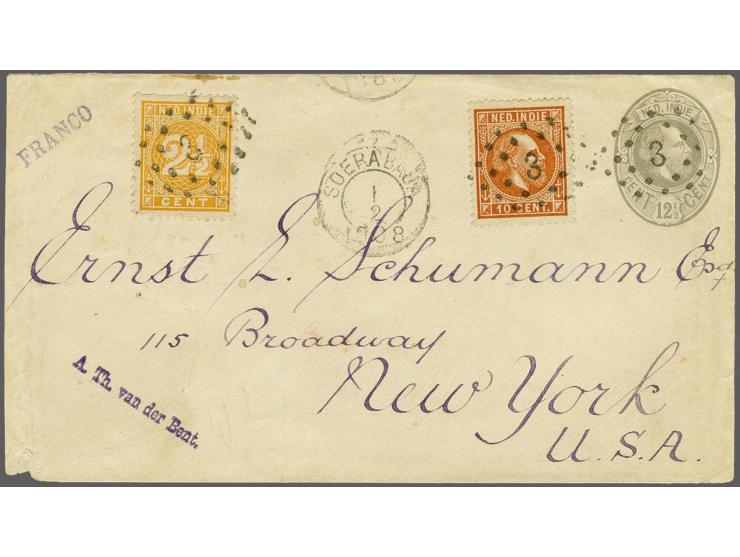 FRANCO
NED. INDIE
2½
CENT
SOERABAJA
1
2
1888
NED. INDIE
3
10 CENT.
NED. INDIE
3
CENT 12½ CENT
Ernst L. Schumann Esq
115 Broadway
New York
U.S.A.
A. Th. van der Bent.